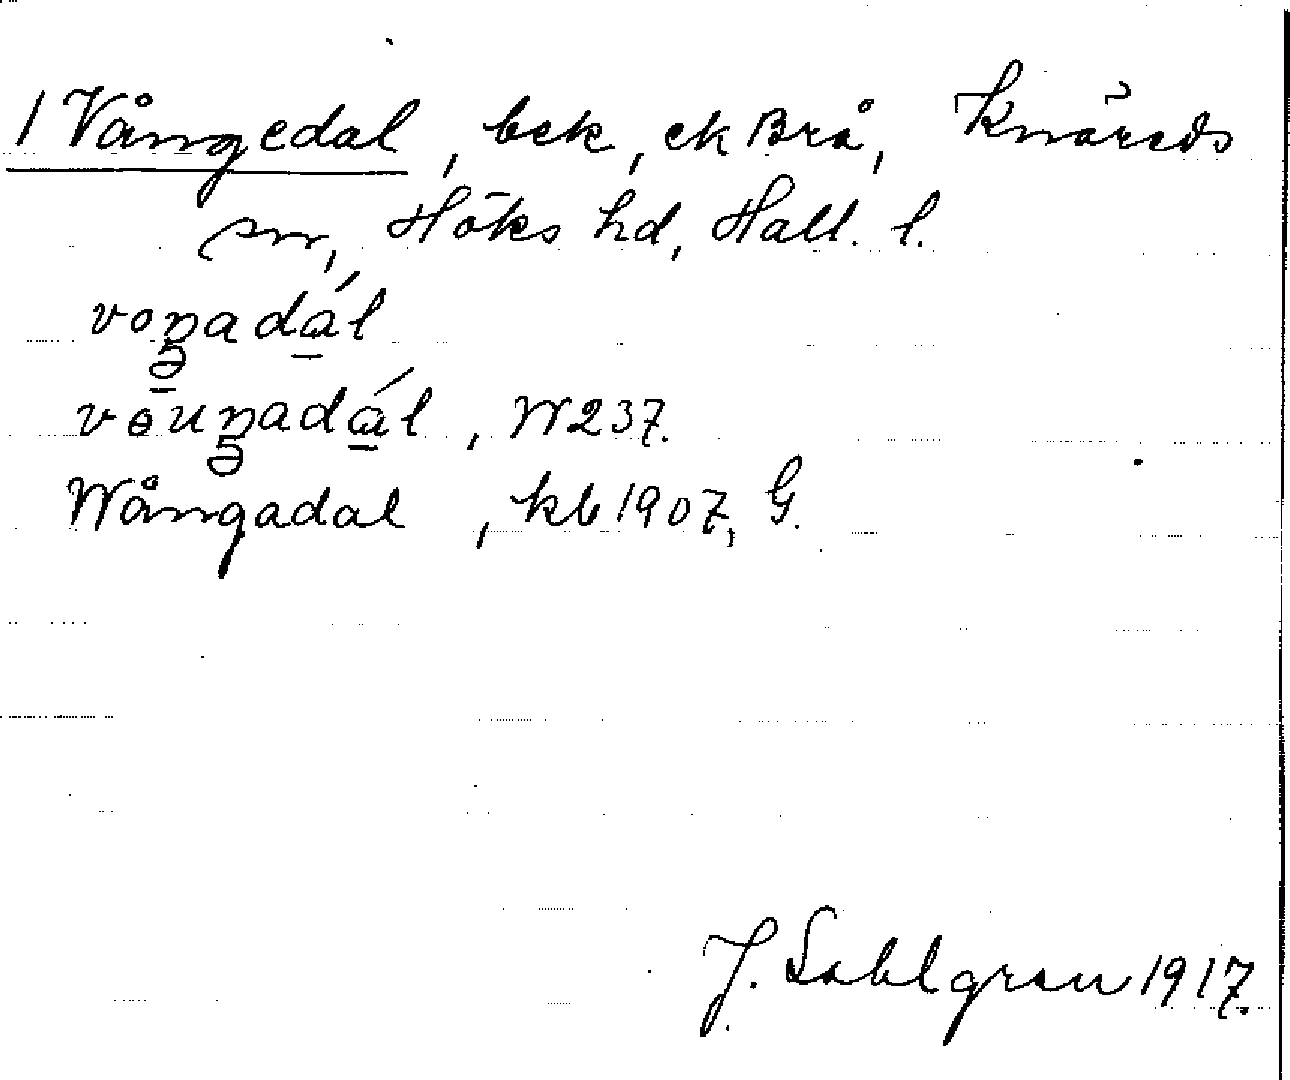 1 Vångedal, bek, ek Brå, Knäreds
sn, Höks hd, Hall. l.
voŋadál
vɵuŋadál, W237.
Wångadal, kb 1907, G.
J. Sahlgren 1917.